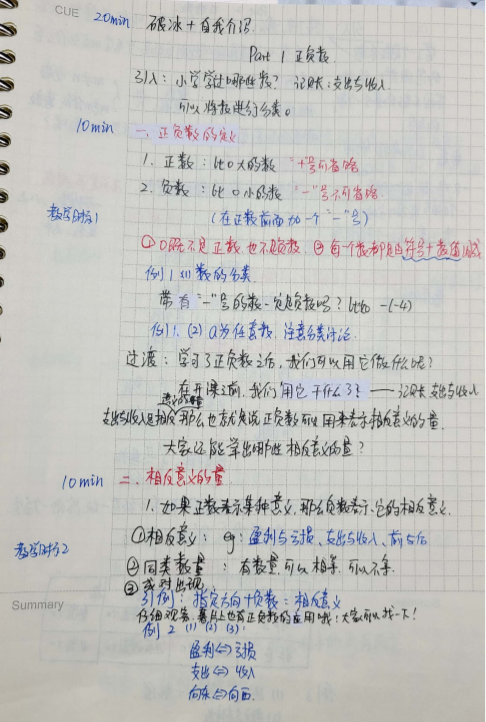 CUE 20min 破冰+自我介绍
Part 1 正负数
引入：小学学过哪些数？记账：支出与收入
可以将数进行分类。
10min 一、正负数的定义
1. 正数：比0大的数 "+"号可省略
2. 负数：比0小的数 "-"号不可省略
教学目标1 （在正数前面加一个"-"号）
①0既不是正数，也不是负数，②每一个数都是由符号+数值组成
例1 (1)数的分类
带有"-"号的数一定是负数吗？比如 -(-4)
例1. (2) a为任意数，注意分类讨论
过渡：学习了正负数之后，我们可以用它做什么呢？
在开课前，我们用它干什么了？——记账 支出与收入
支出与收入是相反 那么也就是说正负数可以用来表示相反意义的量
大家还能举出哪些相反意义的量？
10min 二、相反意义的量
1. 如果正数表示某种意义，那么负数表示它的相反意义.
①相反意义：eg：盈利与亏损、支出与收入、前与后
教学目标2
②同类数量：有数量可以相等，可以不等.
③成对出现
引例：指定方向+负数=相反意义
Summary
仔细观察，上也有正负数的应用哦！大家可以找一下！
例2 (1) (2) (3)
盈利⇔亏损
支出⇔收入
向东⇔向西